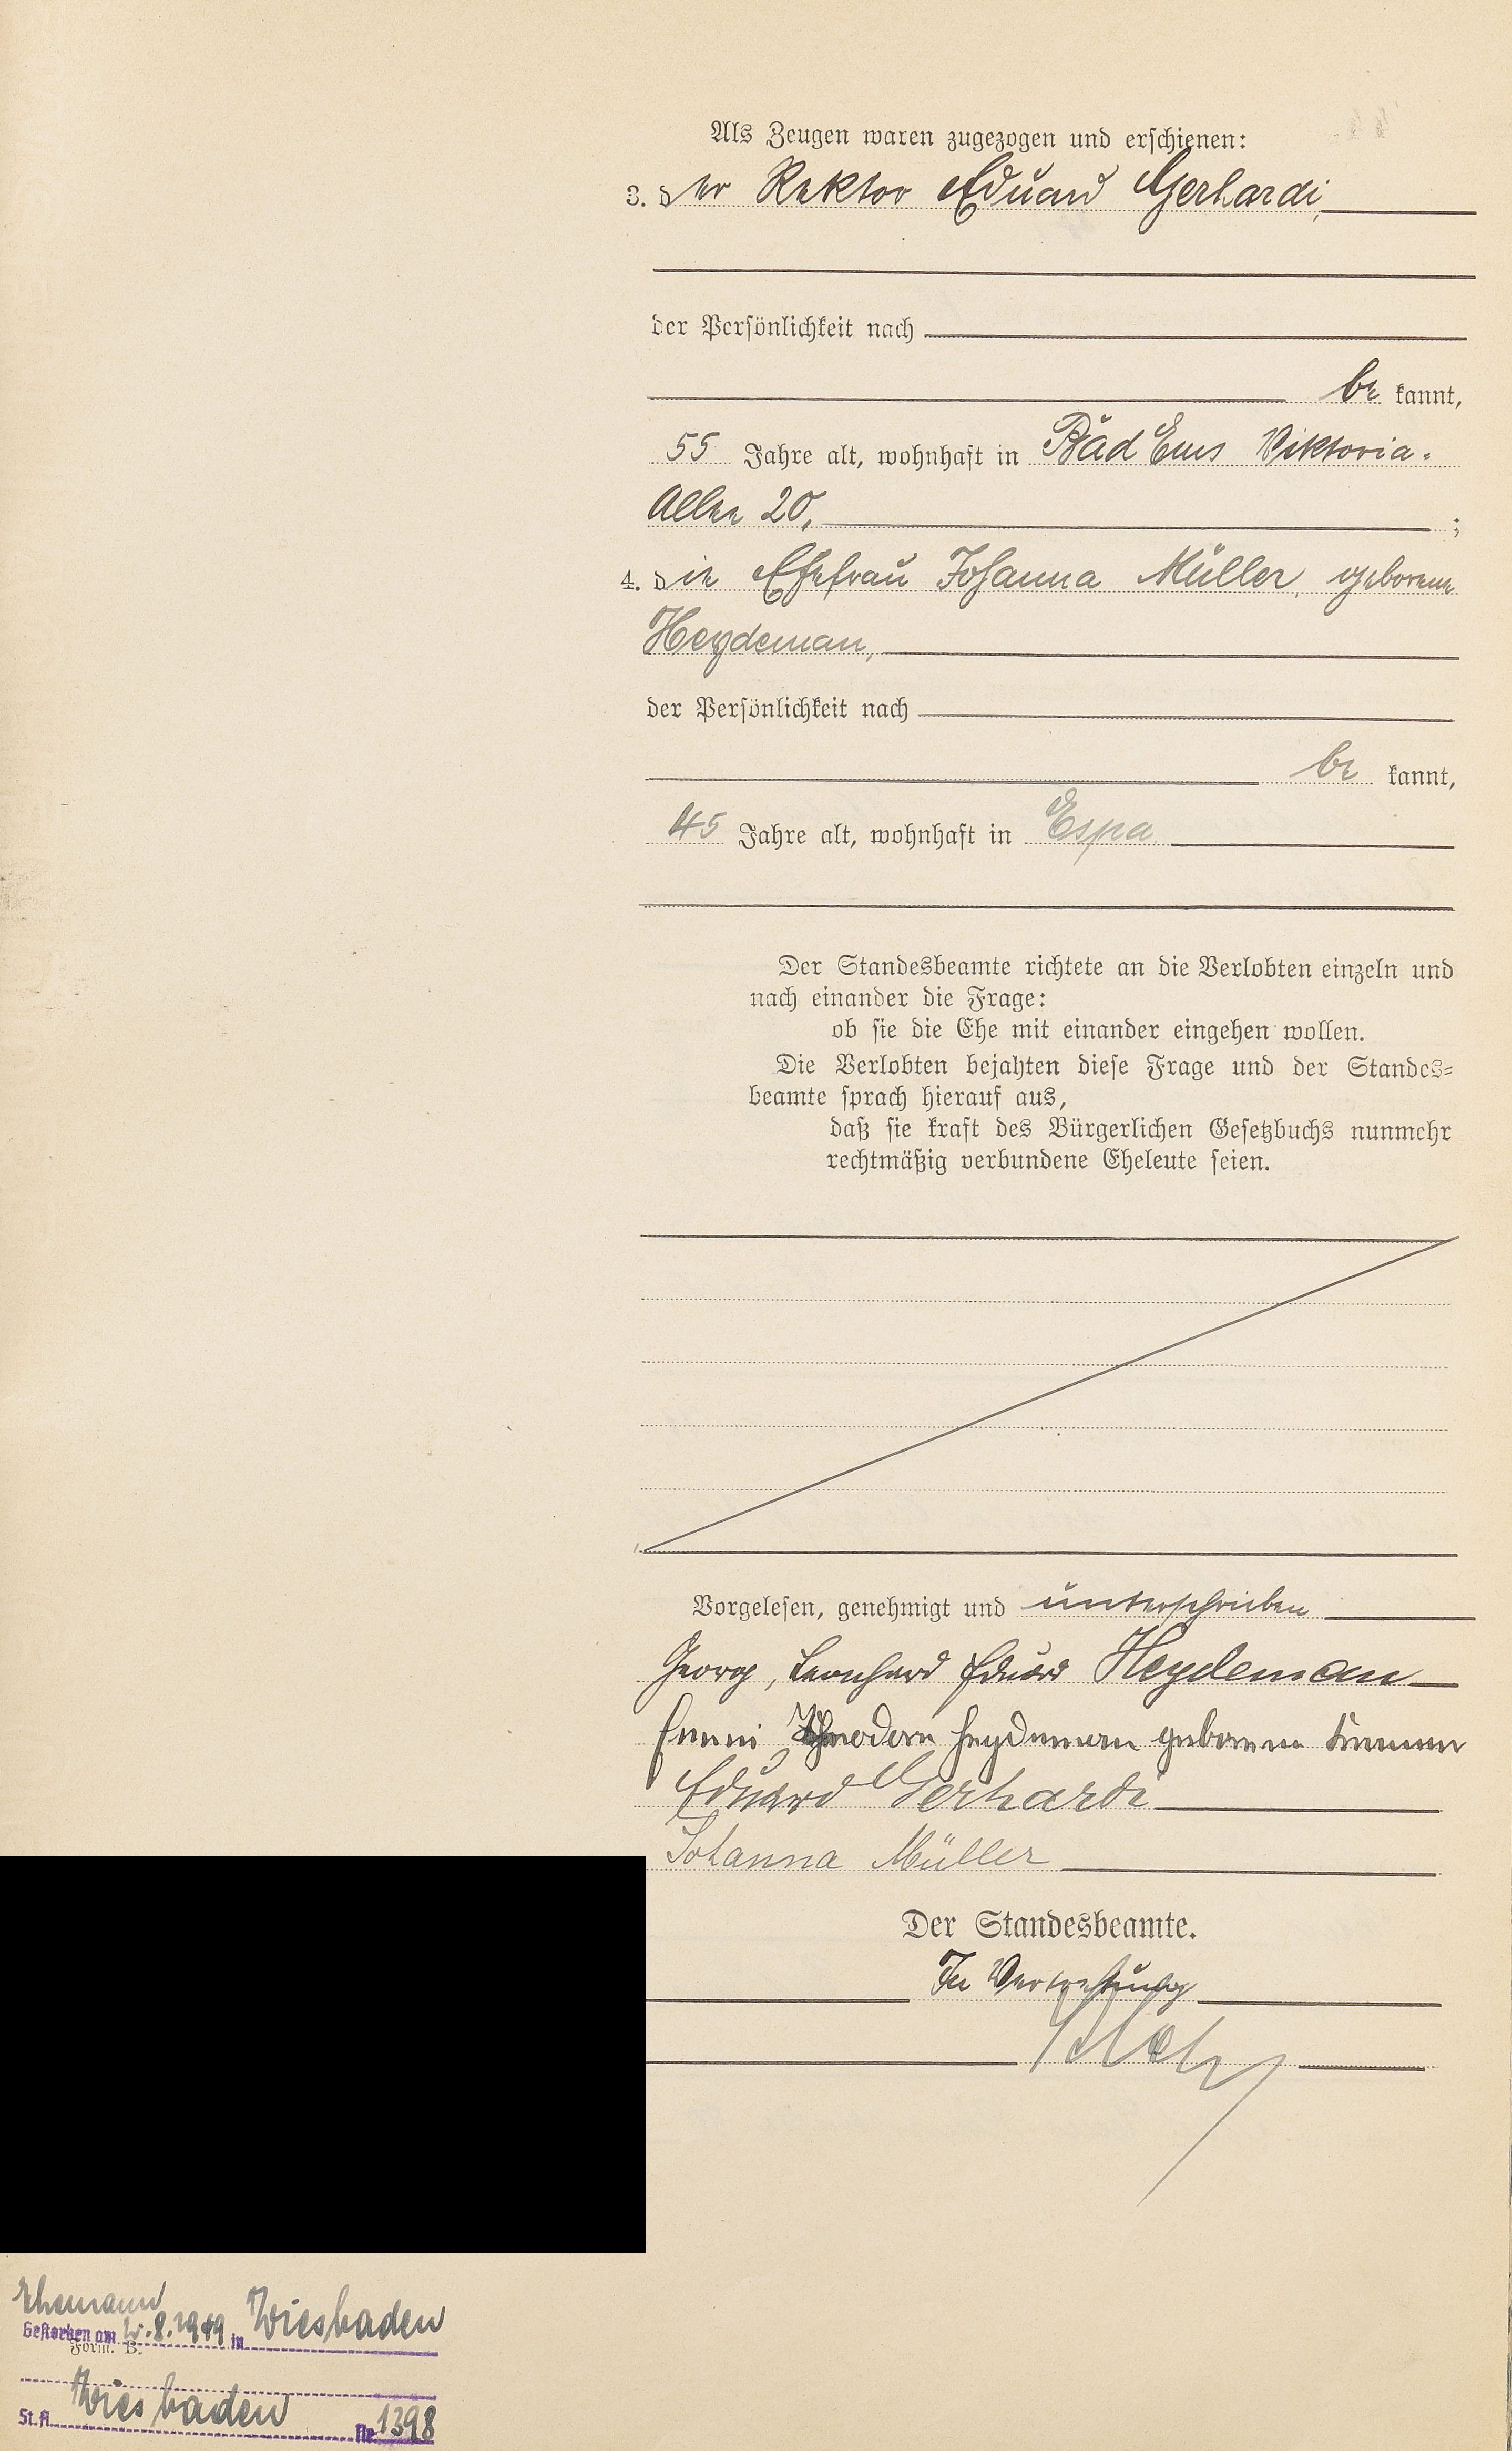 Als Zeugen waren zugezogen und erschienen:
3. der Rektor Eduard Gerhardi,
der Persönlichkeit nach
be kannt,
55 Jahre alt, wohnhaft in Bad Ems Viktoria-
Allee 20, ;
4. die Ehefrau Johanna Müller, geborene
Heydeman,
der Persönlichkeit nach
be kannt,
45 Jahre alt, wohnhaft in Espa
Der Standesbeamte richtete an die Verlobten einzeln und
nach einander die Frage:
ob sie die Ehe mit einander eingehen wollen.
Die Verlobten bejahten diese Frage und der Standes-
beamte sprach hierauf aus,
daß sie kraft des Bürgerlichen Gesetzbuchs nunmehr
rechtmäßig verbundene Eheleute seien.
Vorgelesen, genehmigt und unterschrieben
Georg, Leonhard Eduard Heydeman
Emmi Heydeman geborene
Eduard Gerhardi
Johanna Müller
Der Standesbeamte.
In Vertretung
Ehemann
Gestorben am .8.1949 in Wiesbaden
Form. B.
St.A. Wiesbaden Nr. 1398